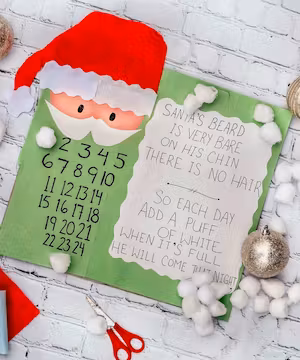 2 3 4 5
6 7 8 9 10
11 12 13 14
15 16 17 18
19 20 21
22 23 24
SANTA'S BEARD
IS VERY BARE
ON HIS CHIN
THERE IS NO HAIR
SO EACH DAY
ADD A PUFF
OF WHITE
WHEN IT'S FULL
HE WILL COME THAT NIGHT